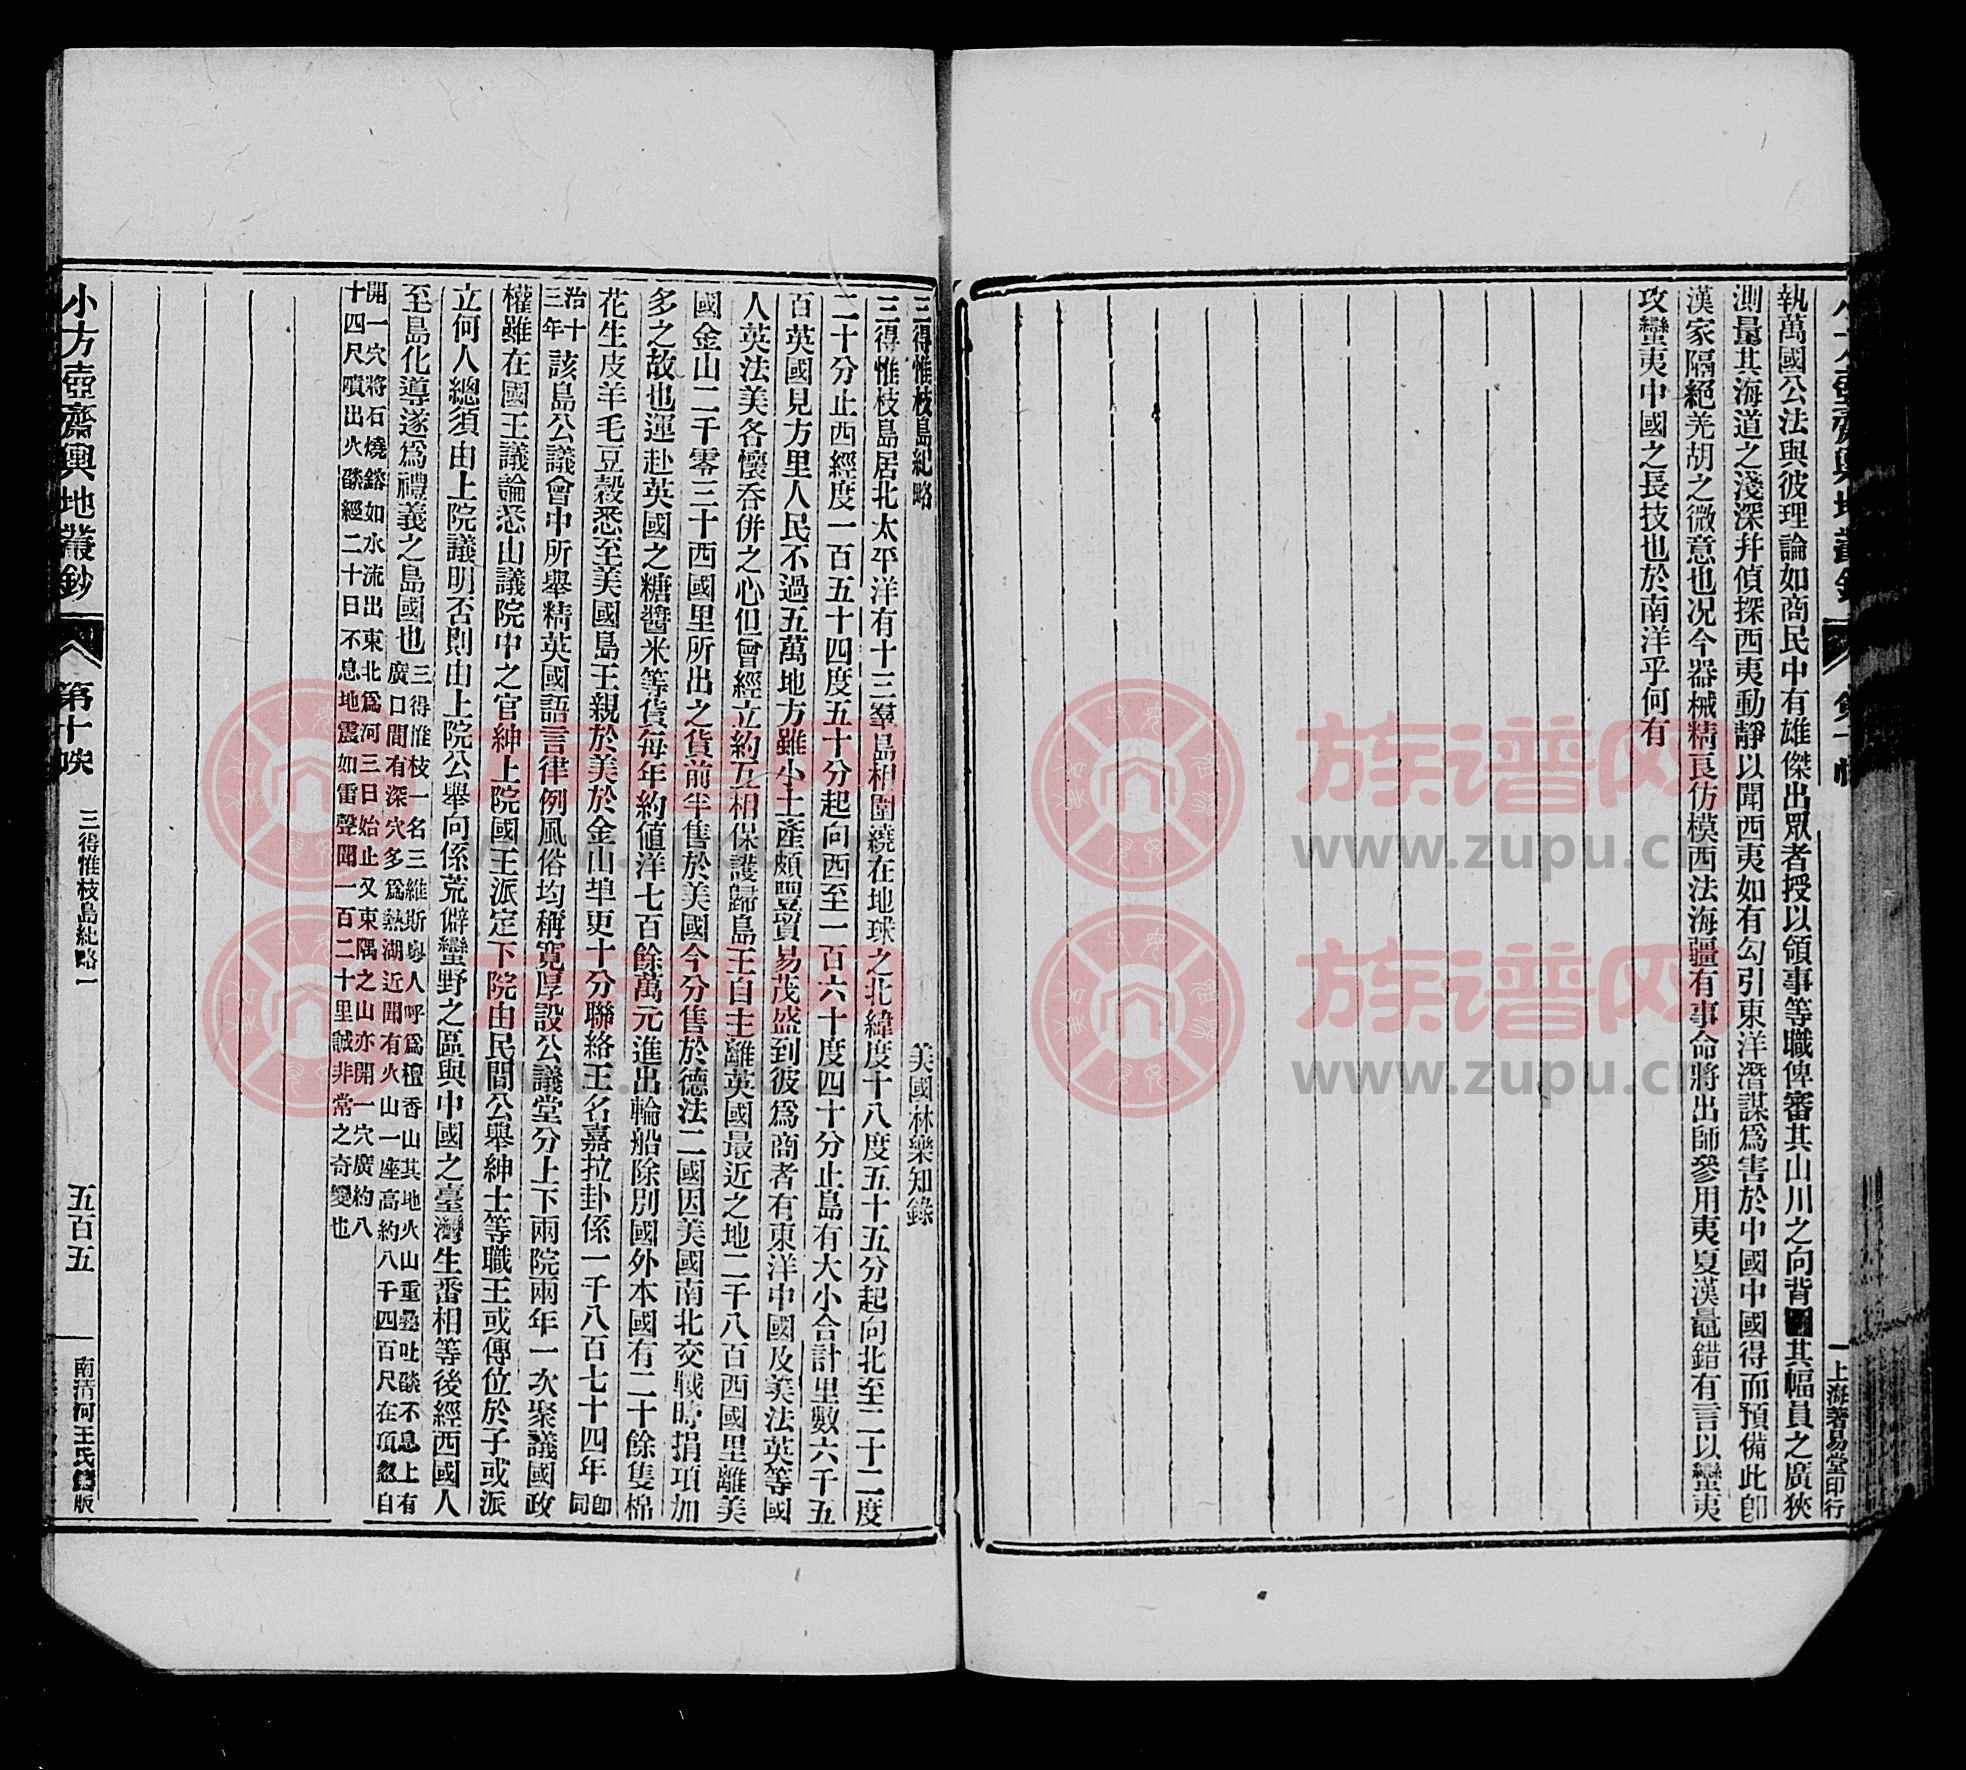 執萬國公法與彼理論如商民中有雄傑出眾者授以領事等職俾審其山川之向背其幅員之廣狹
測量其海道之淺深幷偵探西夷動靜以聞西夷如有勾引東洋潛謀爲害於中國中國得而預備此卽
漢家隔絕羌胡之微意也况今器械精良仿模西法海疆有事命將出師參用夷夏漢鼂錯有言以蠻夷
攻蠻夷中國之長技也於南洋乎何有
上海著易堂印行
三得惟枝島紀略
美國林樂知錄
三得惟枝島居北太平洋有十三羣島相圍繞在地球之北緯度十八度五十五分起向北至二十二度
二十分止西經度一百五十四度五十分起向西至一百六十度四十分止島有大小合計里數六千五
百英國見方里人民不過五萬地方雖小土產頗豐貿易茂盛到彼爲商者有東洋中國及美法英等國
人英法美各懷吞併之心但曾經立約互相保護歸島王自主離英國最近之地二千八百西國里離美
國金山二千零三十西國里所出之貨前半售於美國今分售於德法二國因美國南北交戰時捐項加
多之故也運赴英國之糖醬米等貨每年約值洋七百餘萬元進出輪船除別國外本國有二十餘隻棉
花生皮羊毛豆穀悉至美國島王親於美於金山埠更十分聯絡王名嘉拉卦係一千八百七十四年卽同
治十三年該島公議會中所舉精英國語言律例風俗均稱寬厚設公議堂分上下兩院兩年一次聚議國政
權雖在國王議論悉由議院中之官紳上院國王派定下院由民間公舉紳士等職王或傳位於子或派
立何人總須由上院議明否則由上院公舉向係荒僻蠻野之區與中國之臺灣生番相等後經西國人
至島化導遂爲禮義之島國也三得惟枝一名三維斯粵人呼爲檀香山其地火山重疊吐燄不息上有
廣口間有深穴多爲熱湖近聞有火山一座高約八千四百尺在頂忽自
開一穴將石燒鎔如水流出東北爲河三日始止又東隅之山亦開一穴廣約八
十四尺噴出火燄經二十日不息地震如雷聲聞一百二十里誠非常之奇變也
小方壺齋輿地叢鈔
第十帙
三得惟枝島紀略一
五百五
南清河王氏鑄版
族谱网
www.zupu.cn
族谱网
www.zupu.cn
族谱网
www.zupu.cn
族谱网
www.zupu.cn